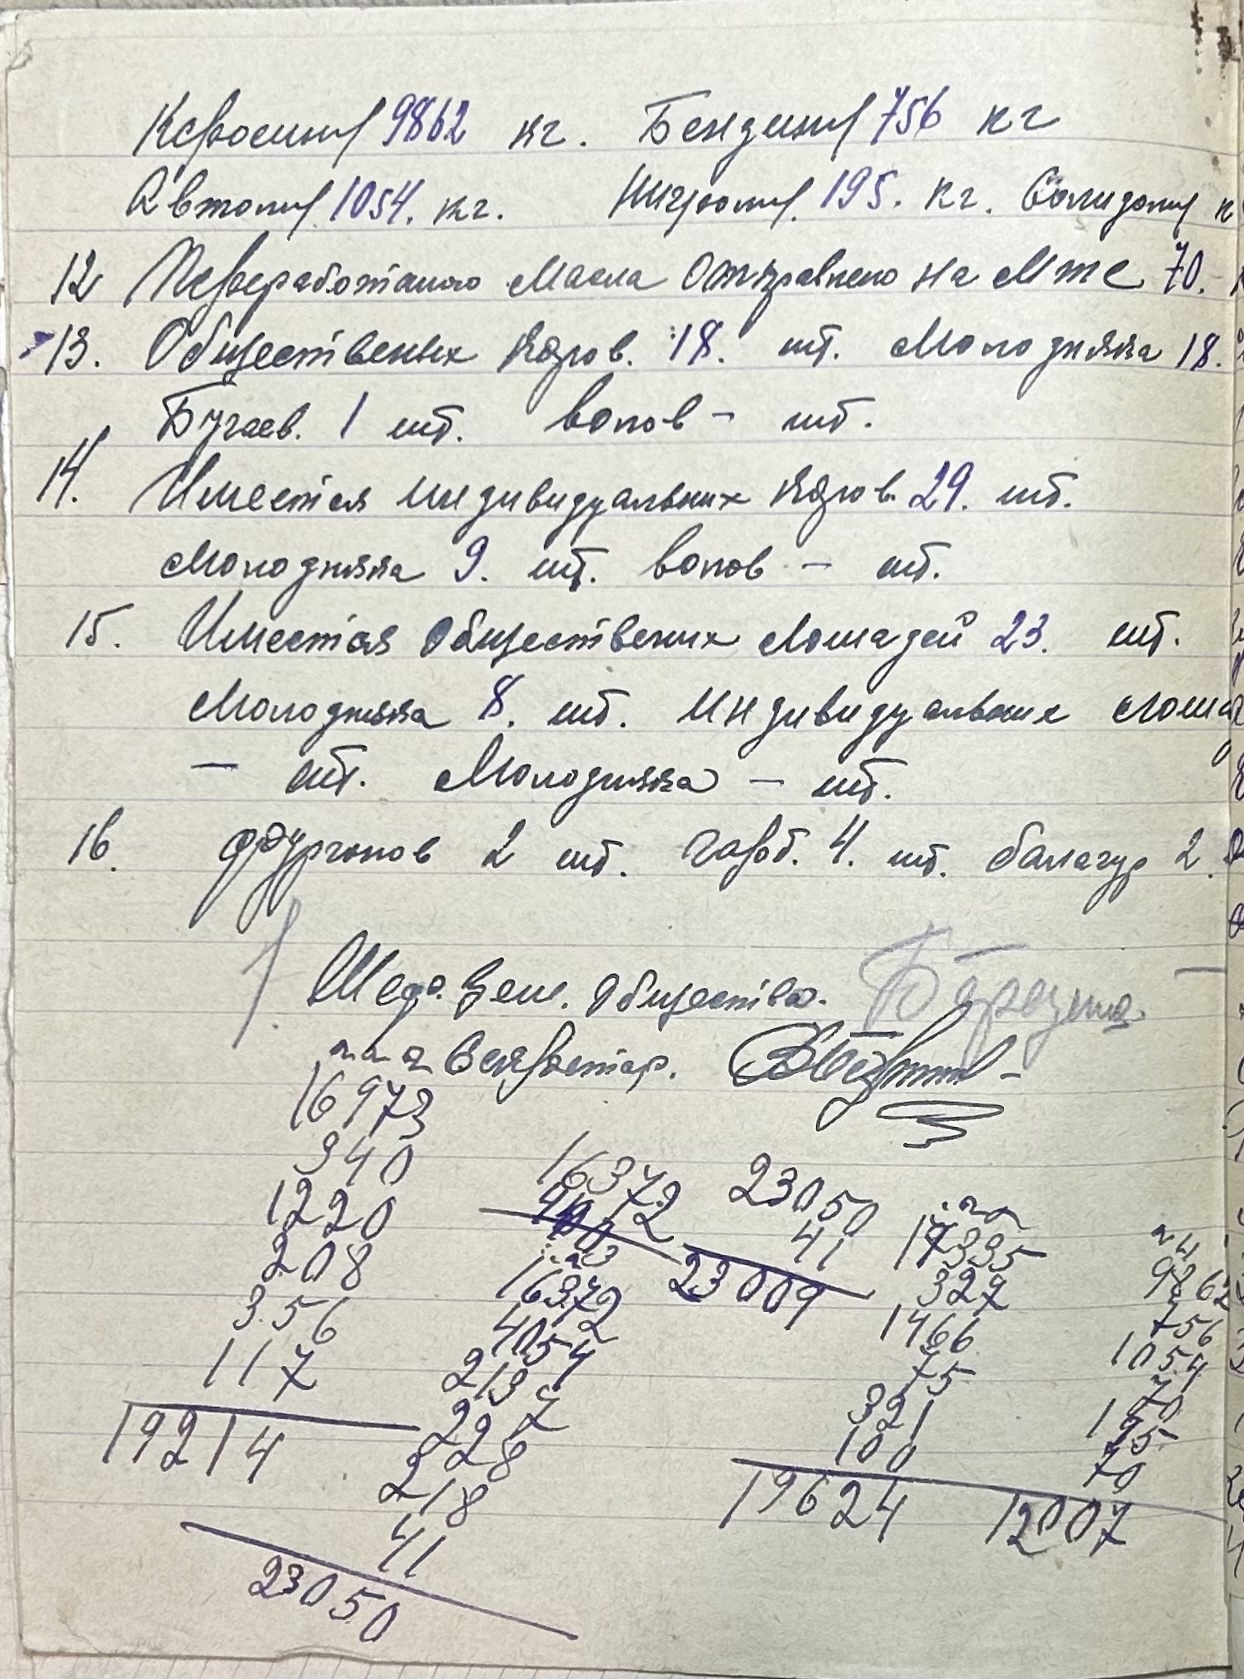 Керосину 9862 кг. Бензину 756 кг
Автолу 1054. кг. Нигролу. 195. кг. Солидолу к
12 Переработаного Масла Отправлено на Мтс 70.
13. Общественых Коров. 18. шт. Молодняка 18.
Бугаев. 1 шт. волов – шт.
14. Имеется индивидуальних Коров. 29. шт.
Молодняка 9. шт. волов – шт.
15. Имеется Обществених Лошадей 23. шт.
Молодняка 8. шт. индивидуальних лоша
– шт. Молодняка – шт.
16. Фургонов 2 шт. гарб. 4. шт. балагур 2.
Зем. Общества.
Секретар.
16973
340
1220
208
356
117
19214
16372
16372
4054
2137
228
218
41
23050
23050
41
23009
17335
327
1466
75
321
100
19624
9862
756
1054
70
195
70
12007